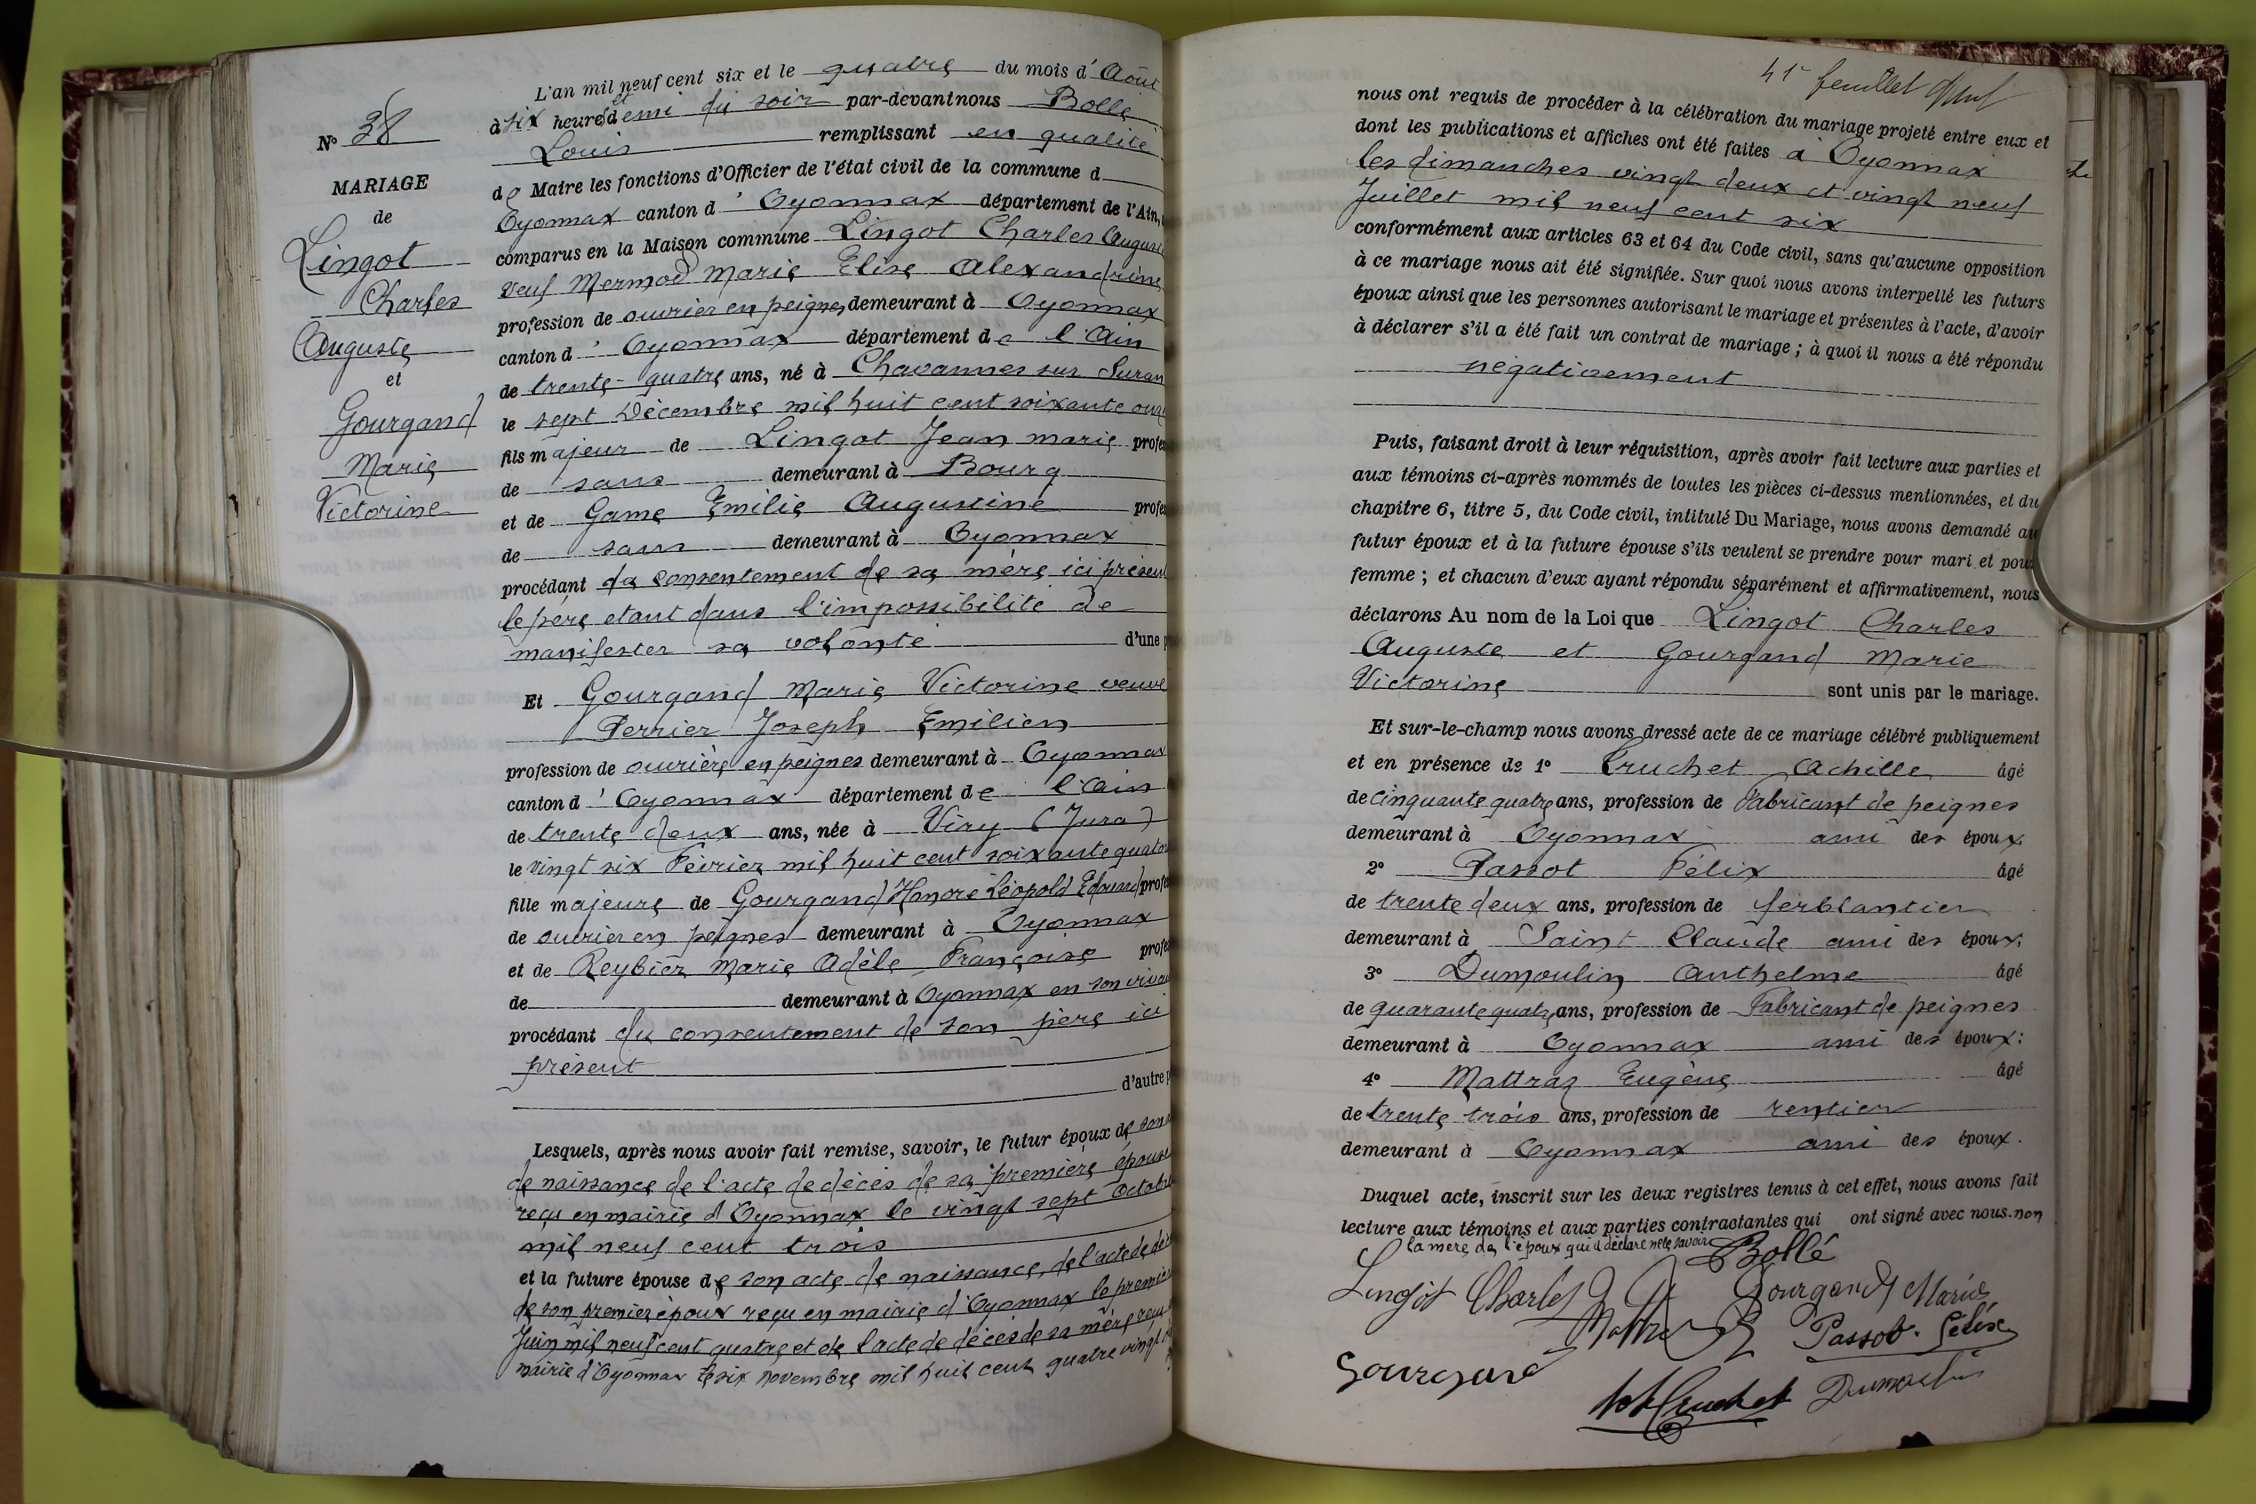 N° 38
MARIAGE
de
Lingot
Charles
Auguste
et
Gourgand
Marie
Victorine
L'an mil neuf cent six et le quatre du mois d'Août
à six heures et demi du soir par-devant nous Bollé
Louis remplissant en qualité
de Maire les fonctions d'Officier de l'état civil de la commune d
Oyonnax canton d'Oyonnax département de l'Ain,
comparus en la Maison commune Lingot Charles Auguste
veuf Mermod Marie Elise Alexandrine
profession de ouvrier en peignes demeurant à Oyonnax
canton d'Oyonnax département de l'Ain
de trente-quatre ans, né à Chavannes sur Suran
le sept Décembre mil huit cent soixante onze
fils majeur de Lingot Jean Marie profes
de sans demeurant à Bourg
et de Game Emilie Augustine profes
de sans demeurant à Oyonnax
procédant du consentement de sa mère ici présent
le père etant dans l'impossibilité de
manifester sa volonté d'une p
Et Gourgand Marie Victorine veuve
Perrier Joseph Emilien
profession de ouvrière en peignes demeurant à Oyonnax
canton d'Oyonnax département de l'Ain
de trente deux ans, née à Viry (Jura)
le vingt six Février mil huit cent soixante quator
fille majeure de Gourgand Honoré Léopold Edouard profes
de ouvrier en peignes demeurant à Oyonnax
et de Reybier Marie Adèle Françoise profes
de demeurant à Oyonnax en son vivan
procédant du consentement de son père ici
présent
d'autre p
Lesquels, après nous avoir fait remise, savoir, le futur époux de son
de naissance de l'acte de décès de sa première épouse
reçu en mairie d'Oyonnax le vingt sept Octobre
mil neuf cent trois
et la future épouse de son acte de naissance, de l'acte de dé
de son premier époux reçu en mairie d'Oyonnax le premier
Juin mil neuf cent quatre et de l'acte de décès de sa mère reçu
mairie d'Oyonnax le six novembre mil huit cent quatre vingt
41e feuillet
nous ont requis de procéder à la célébration du mariage projeté entre eux et
dont les publications et affiches ont été faites à Oyonnax
les dimanches vingt deux et vingt neuf
Juillet mil neuf cent six
conformément aux articles 63 et 64 du Code civil, sans qu'aucune opposition
à ce mariage nous ait été signifiée. Sur quoi nous avons interpellé les futurs
époux ainsi que les personnes autorisant le mariage et présentes à l'acte, d'avoir
à déclarer s'il a été fait un contrat de mariage ; à quoi il nous a été répondu
négativement
Puis, faisant droit à leur réquisition, après avoir fait lecture aux parties et
aux témoins ci-après nommés de toutes les pièces ci-dessus mentionnées, et du
chapitre 6, titre 5, du Code civil, intitulé Du Mariage, nous avons demandé au
futur époux et à la future épouse s'ils veulent se prendre pour mari et pour
femme ; et chacun d'eux ayant répondu séparément et affirmativement, nous
déclarons Au nom de la Loi que Lingot Charles
Auguste et Gourgand Marie
Victorine sont unis par le mariage.
Et sur-le-champ nous avons dressé acte de ce mariage célébré publiquement
et en présence de 1° Cruchet Achille âgé
de cinquante quatre ans, profession de Fabricant de peignes
demeurant à Oyonnax ami des époux.
2° Passot Félix âgé
de trente deux ans, profession de ferblantier
demeurant à Saint Claude ami des époux;
3° Dumoulin Anthelme âgé
de quarante quatre ans, profession de Fabricant de peignes
demeurant à Oyonnax ami des époux:
4° Mattraz Eugène âgé
de trente trois ans, profession de rentier
demeurant à Oyonnax ami des époux.
Duquel acte, inscrit sur les deux registres tenus à cet effet, nous avons fait
lecture aux témoins et aux parties contractantes qui ont signé avec nous. non
la mère de l'époux qui a déclaré ne le savoir
Bollé
Lingot Charles
Gourgand Marie
Passot Félix
Gourgand
Cruchet
Dumoulin